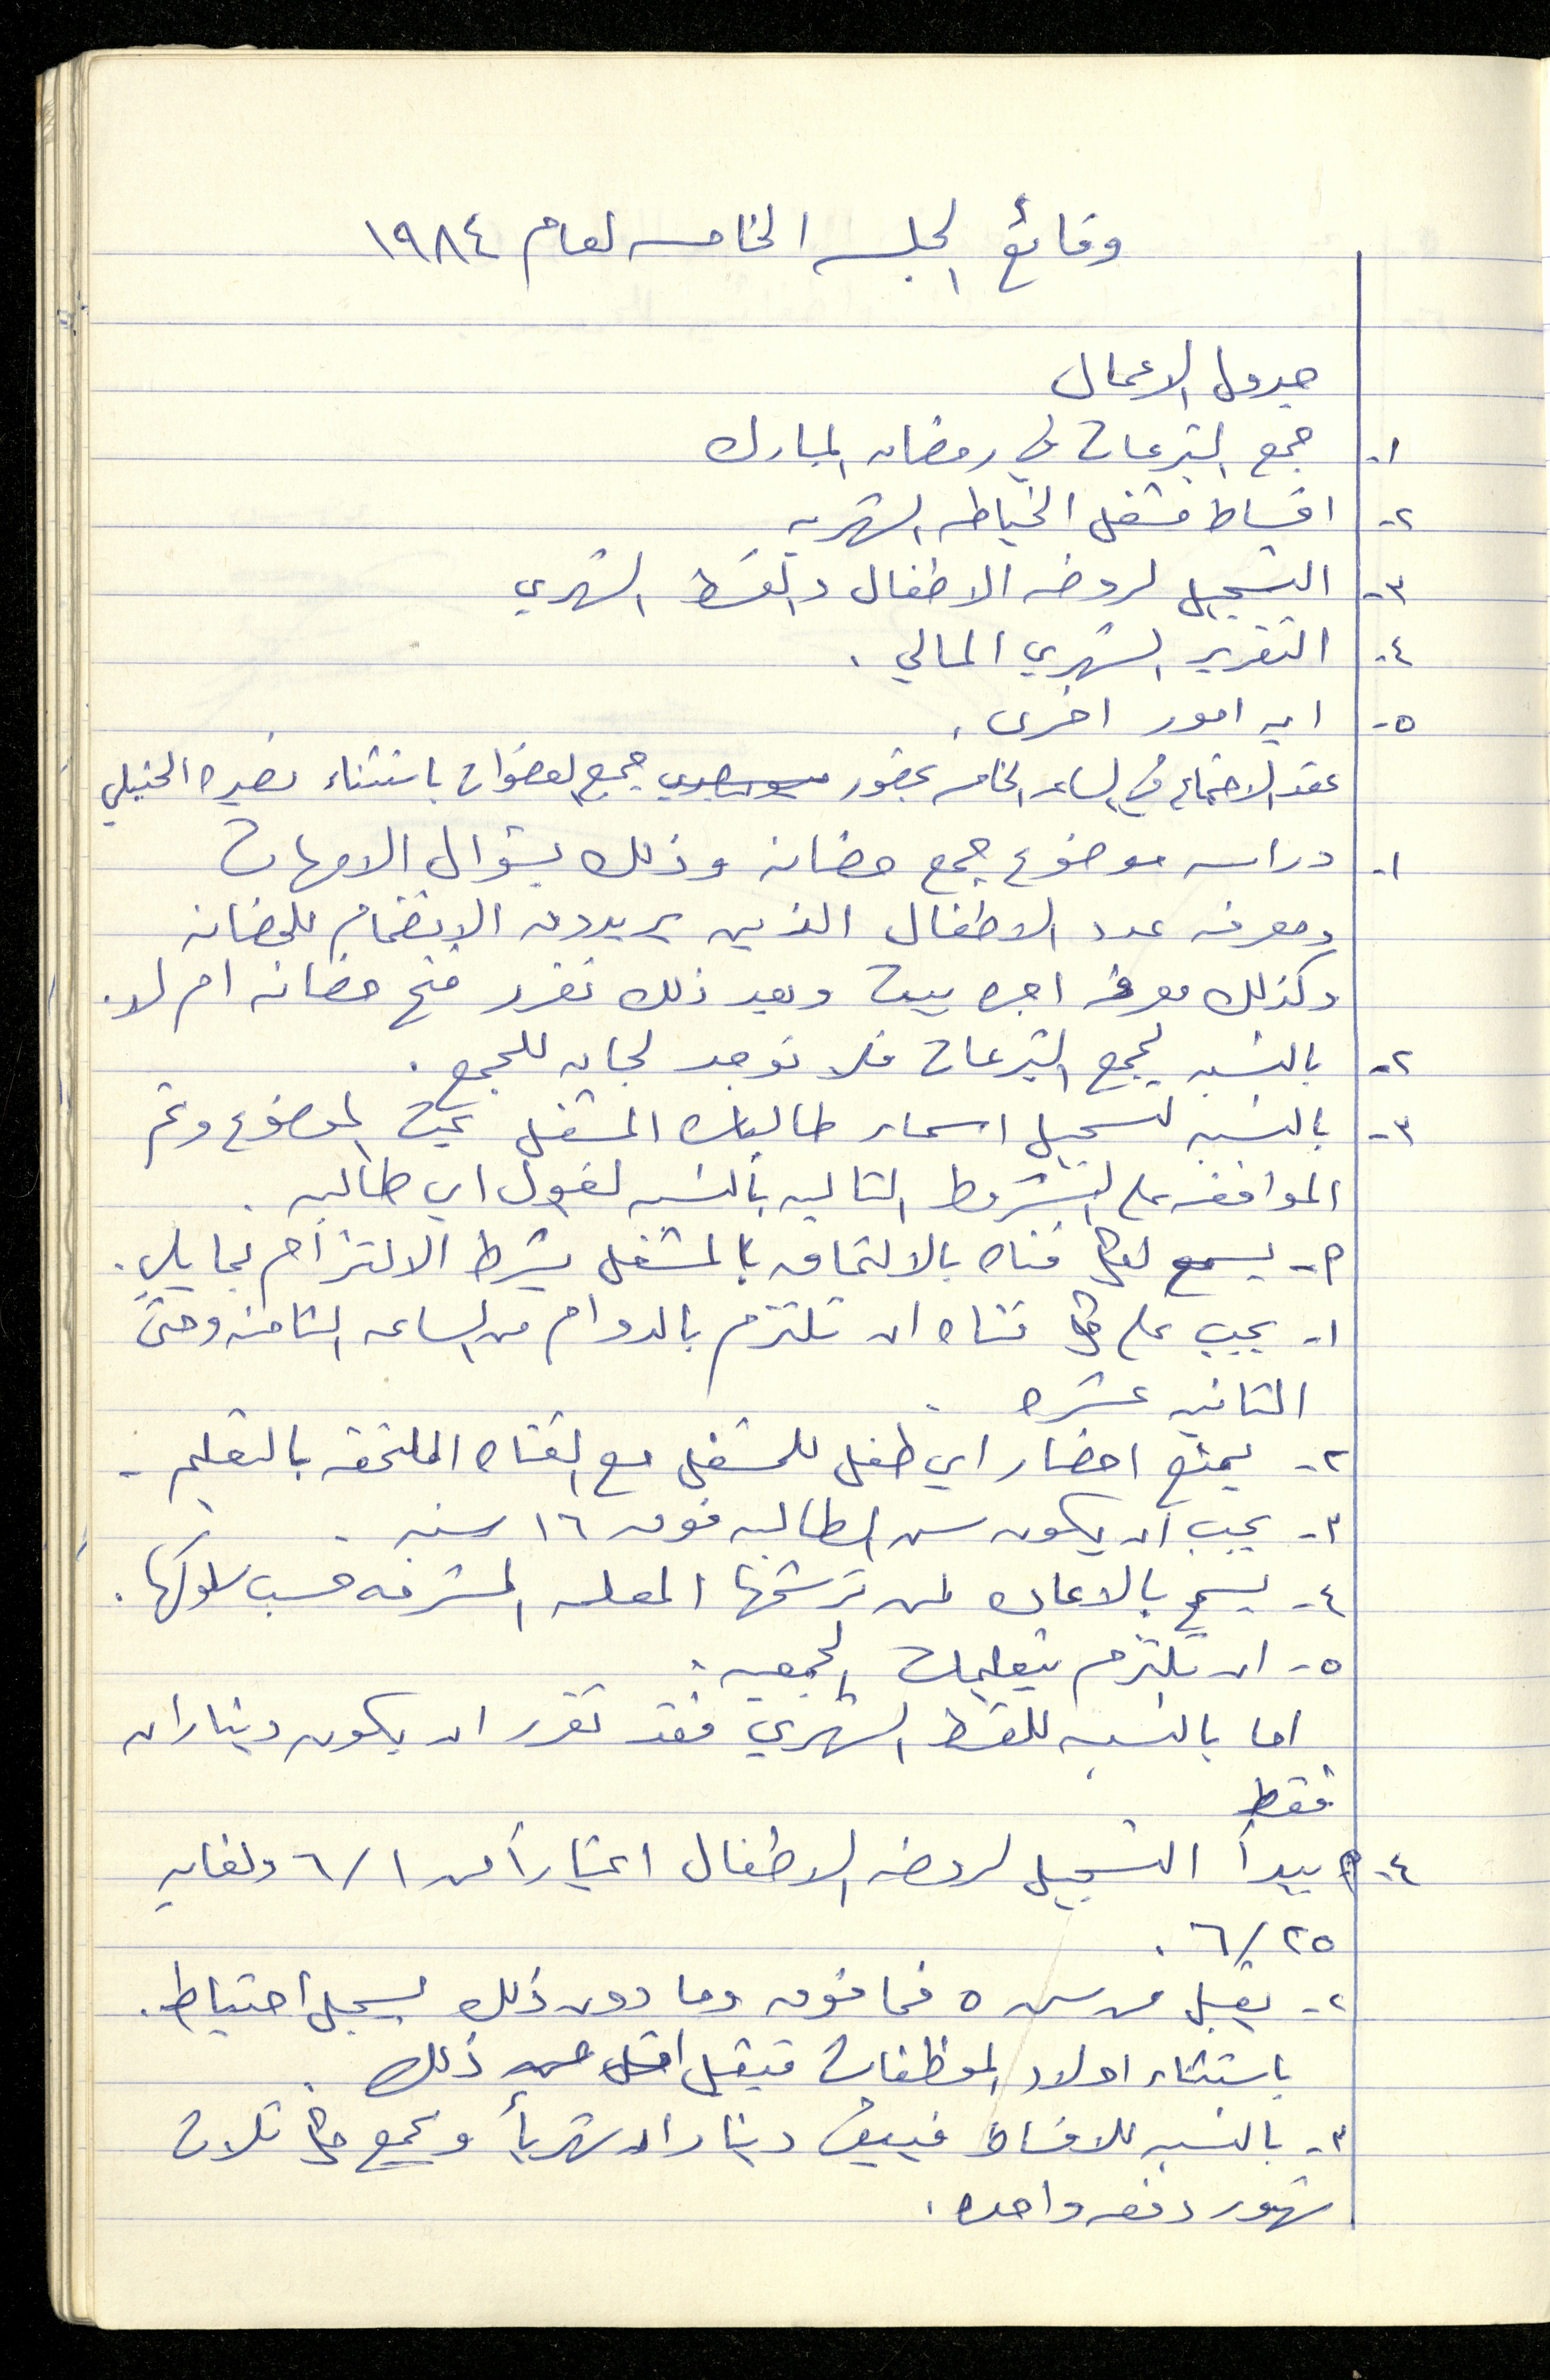 وقائع الجلسه الخامسه لعام ١٩٨٤
جدول الاعمال
١- جمع التبرعات في رمضان المبارك
٢- اقساط مشغل الخياطه الشهريه
٣- التسجيل لروضه الاطفال والقسط الشهري
٤- التقرير الشهري المالي .
٥- ايه امور اخرى .
عقد الاجتماع في الساعه الخامسه بحضور جميع العضوات باستثناء نصيره الحنبلي
١- دراسه موضوع جمع حضانه وذلك بسؤال الامهات
ومعرفه عدد الاطفال الذين يريدون الانضمام للحضانه
وكذلك معرفه اجره بيت وبعد ذلك نقرر فتح حضانه ام لا .
٢- بالنسبه لجمع التبرعات فلا توجد لجان للجمع .
٣- بالنسبه لتسجيل اسماء طالبات المشغل بحث الموضوع وتم
الموافقه على الشروط التاليه بالنسبه لقبول اي طالبه .
٢- يسمع لكل فتاه بالالتحاق بالمشغل بشرط الالتزام بما يلي .
١- يجب على كل فتاه ان تلتزم بالدوام من الساعه الثامنه وحتى
الثانيه عشره .
٢- يمنع احضار اي طفل للمشغل مع الفتاه الملتحقه بالتعليم -
٣- يجب ان يكون سن الطالبه فوق ١٦ سنه .
٤- يسمح بالاعاده لمن ترشحها المعلمه المشرفه حسب سلوكها .
٥- ان تلتزم بتعليمات الجمعيه .
اما بالنسبه للقسط الشهري فقد تقرر ان يكون ديناران
فقط
٤- يبدأ التسجيل لروضه الاطفال اعتباراً من ٦/١ ولغايه
٦/٢٥ .
٢- يقبل من سن ٥ فما فوق وما دون ذلك يسجل احتياط .
باستثناء اولاد الموظفات فيقبل اقل من ذلك .
٣- بالنسبه للاقساط فيبقى ديناران شهرياً وتجمع كل ثلاث
شهور دفعه واحده .